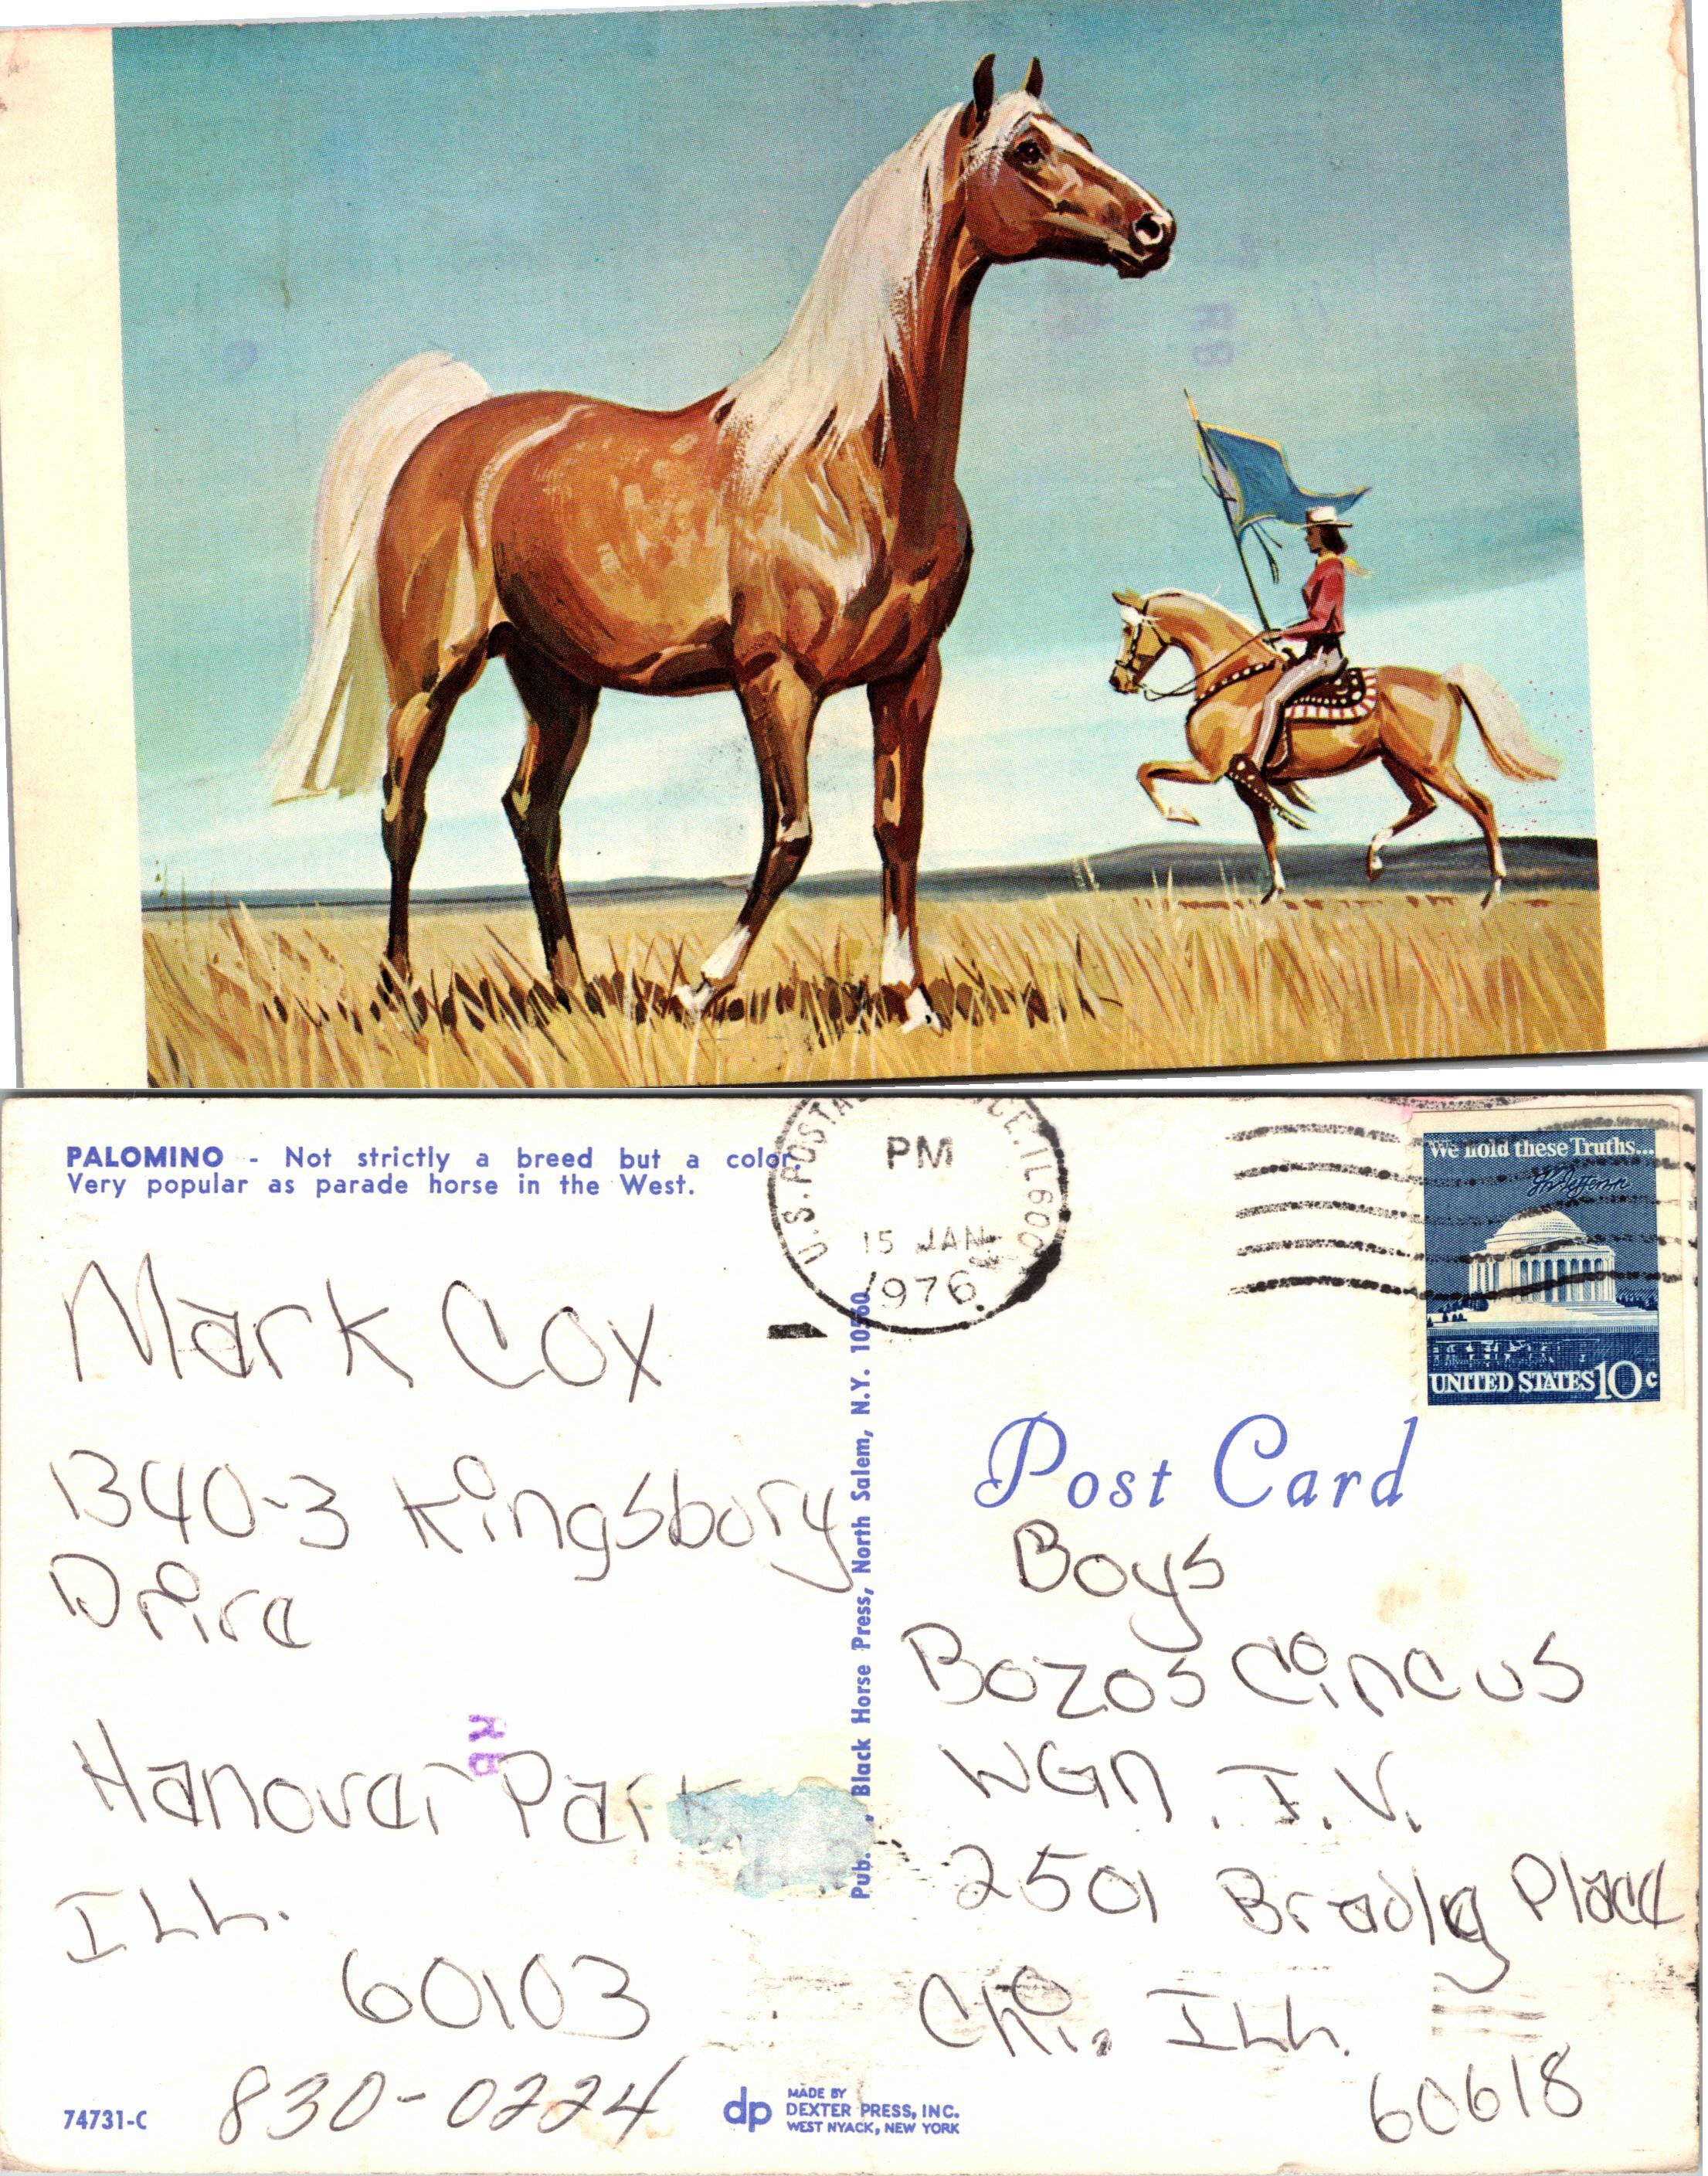 PALOMINO - Not strictly a breed but a color.
Very popular as parade horse in the West.
U.S. POSTA CE. IL 600
PM
15 JAN
1976
We hold these Truths...
Th Jefferson
UNITED STATES 10c
Mark Cox
1340-3 Kingsbory
Drive
Hanover Park
ILL.
60103
830-0224
Pub. , Black Horse Press, North Salem, N.Y. 10560
Post Card
Boys
Bozos Circus
WGN. T.V.
2501 Bradly Place
Chi, ILL.
60618
74731-C
dp
MADE BY
DEXTER PRESS, INC.
WEST NYACK, NEW YORK